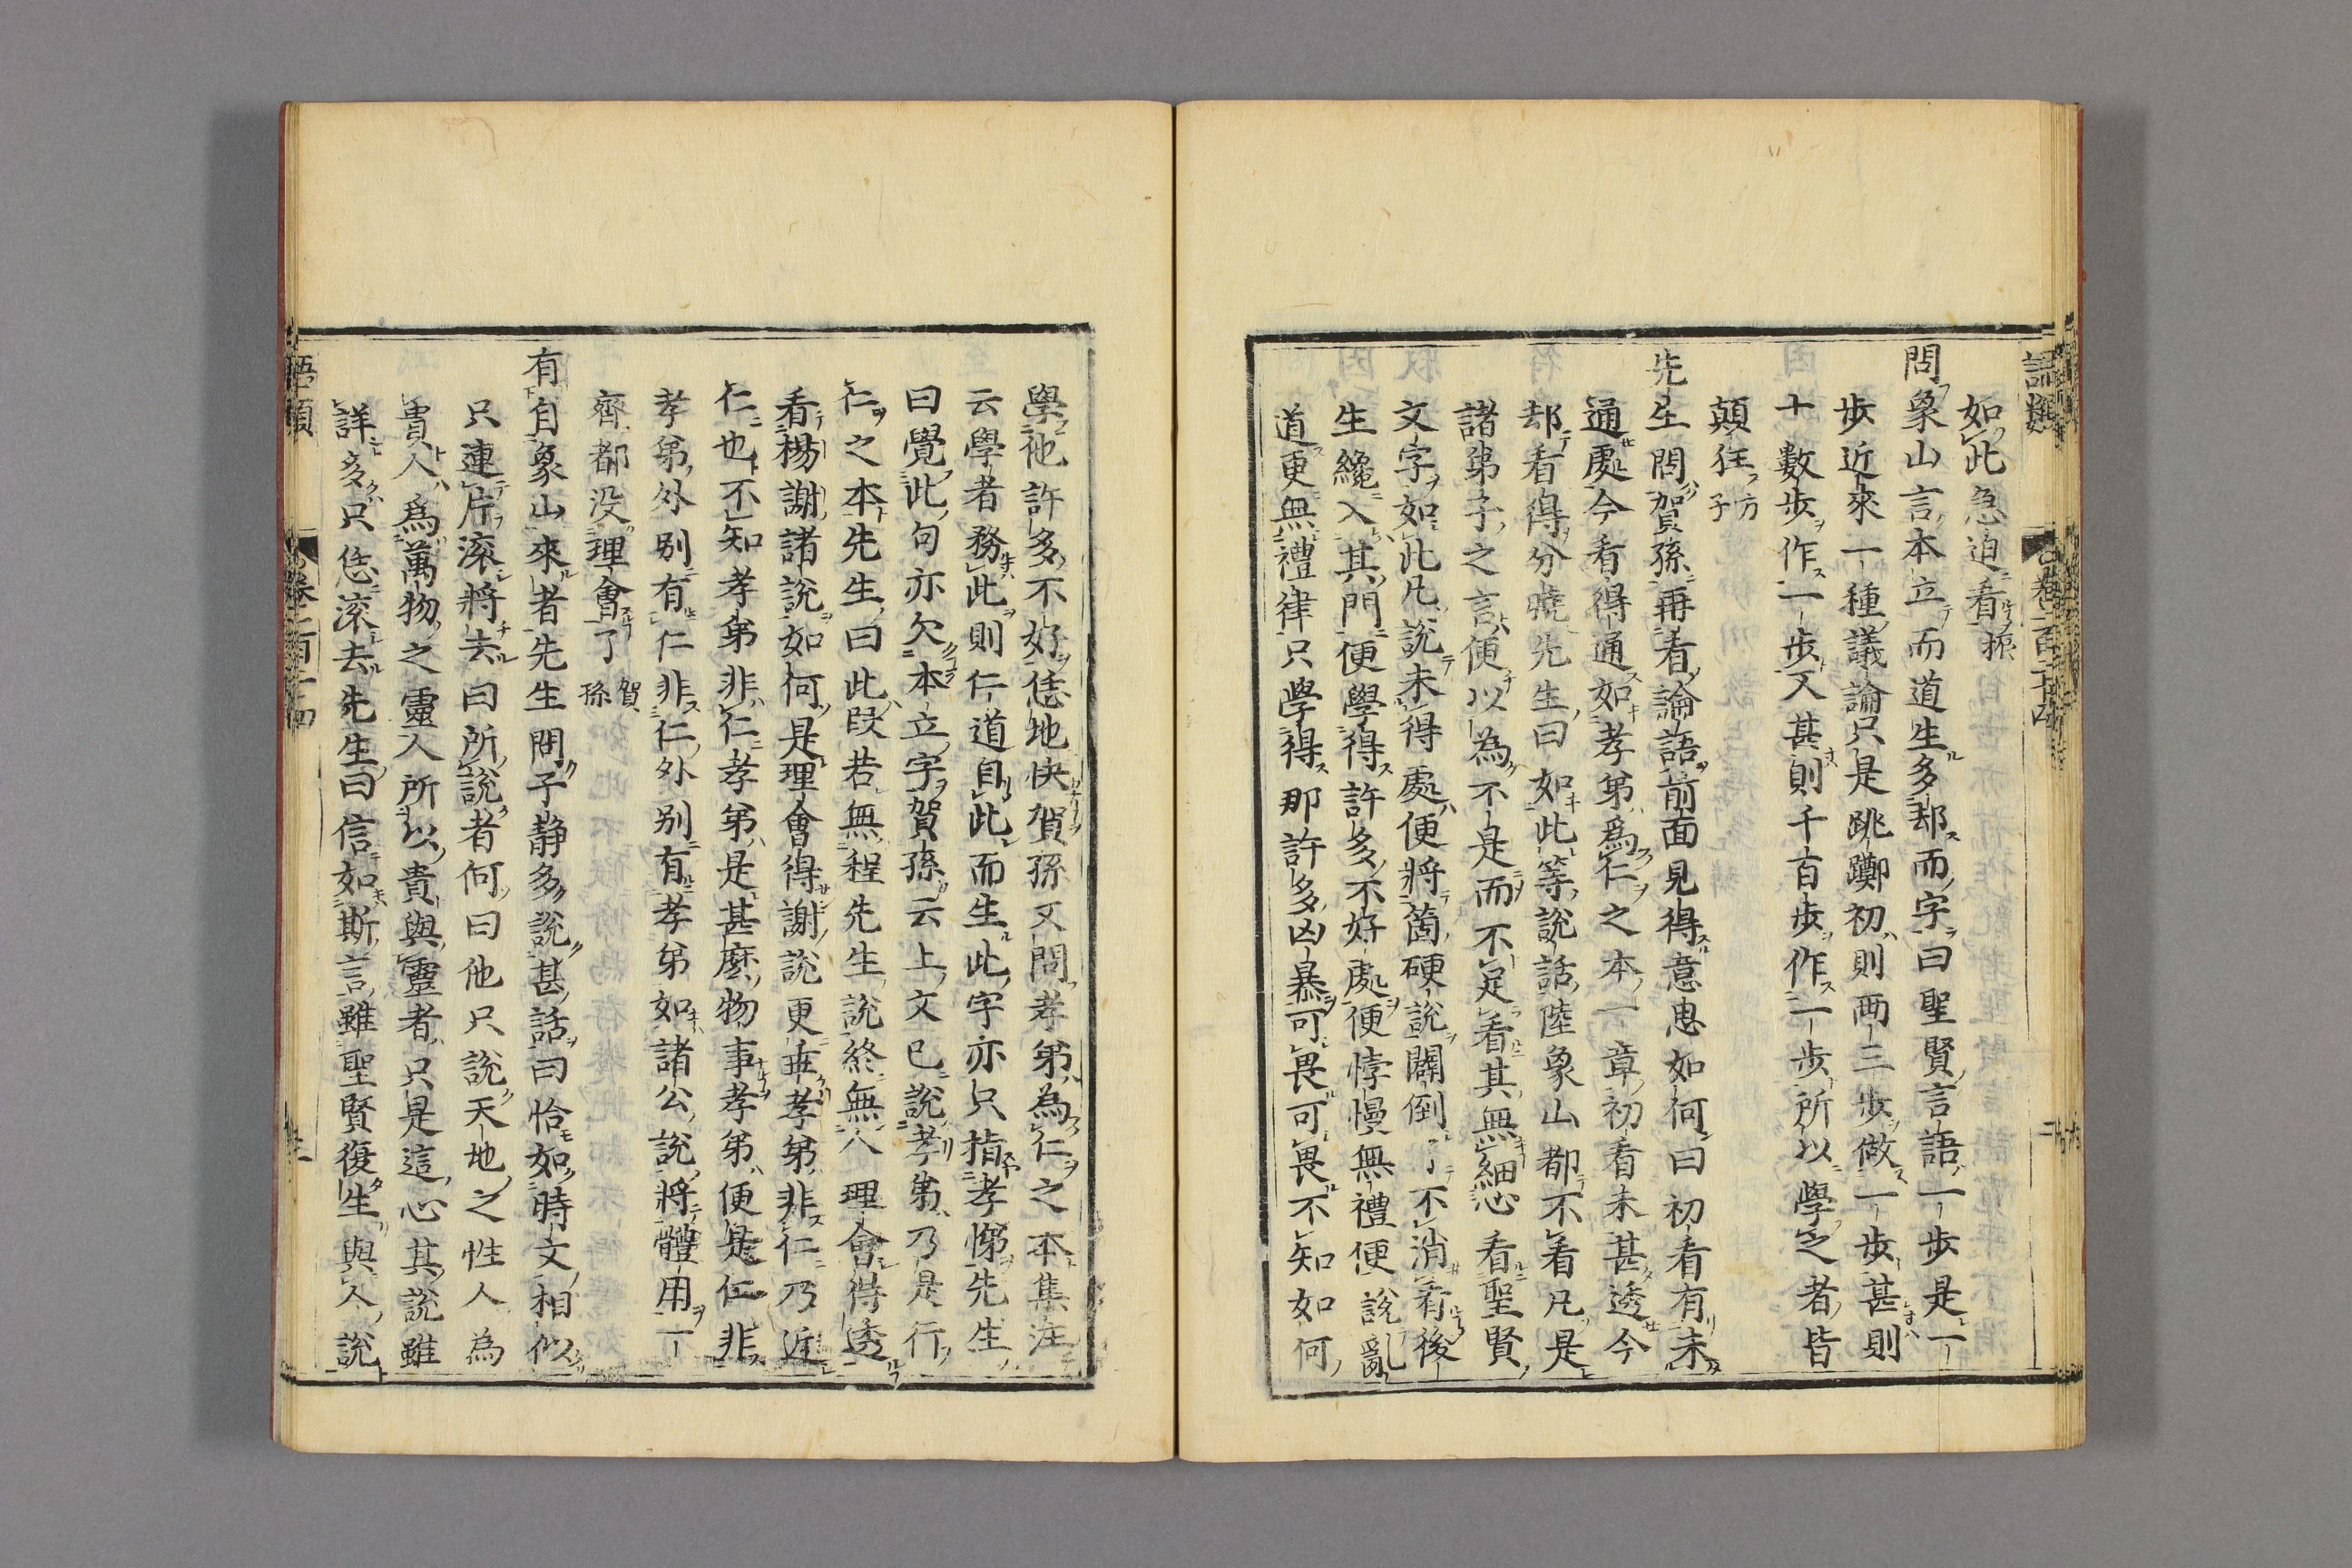 如此急迫看 振
問象山言本立而道生多却而字曰聖賢言語一步是一
步近來一種議論只是跳躑初則兩三步做一步甚則
十數步作一步又甚則千百步作一步所以學之者皆
顛狂 方子
先生問賀孫再看論語前面見得意思如何曰初看有未
通處今看得通如孝弟爲仁之本一章初看未甚透今
却看得分曉先生曰如此等說話陸象山都不看凡是
諸弟子之言便以為不是而不足看其無細心看聖賢
文字如此凡說未得處便將箇硬說闢倒了不消看後
生纔入其門便學得許多不好處便悖慢無禮便說亂
道更無禮律只學得那許多凶暴可畏可畏不知如何
學他許多不好恁地快賀孫又問孝弟為仁之本集注
云學者務此則仁道自此而生此字亦只指孝悌先生
曰覺此句亦欠本立字賀孫云上文已說孝弟乃是行
仁之本先生曰此段若無程先生說終無人理會得透
看楊謝諸說如何是理會得謝說更乖孝弟非仁乃近
仁也不知孝弟非仁孝弟是甚麽物事孝弟便是仁非
孝弟外別有仁非仁外別有孝弟如諸公說將體用一
齊都没理會了 賀孫
有自象山來者先生問子静多說甚話曰恰如時文相似
只連片滚將去曰所說者何曰他只說天地之性人為
貴人爲萬物之靈人所以貴與靈者只是這心其說雖
詳多只恁滚去先生曰信如斯言雖聖賢復生與人說
語類
卷一百二十四